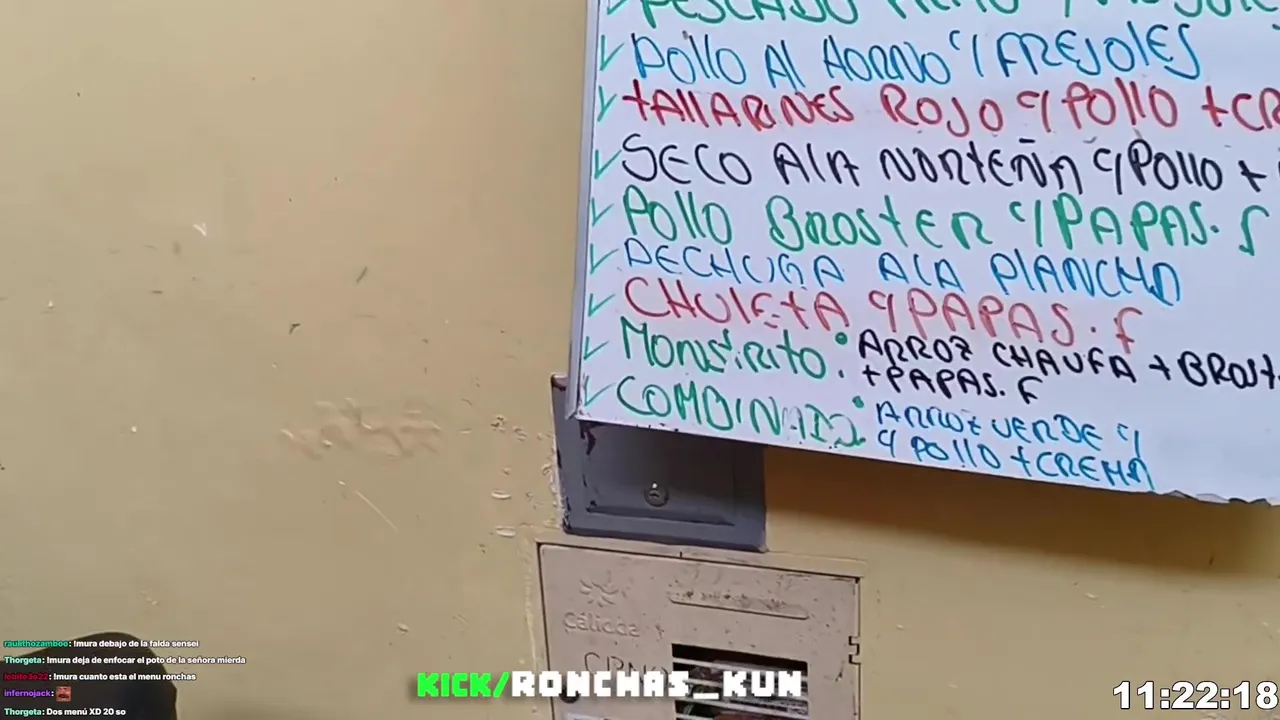 PESCADO FRITO
POLLO AL HORNO C/ FREJOLES
TALLARINES ROJO C/ POLLO + CR
SECO A LA NORTEÑA C/ POLLO +
POLLO BROSTER C/ PAPAS. F
PECHUGA A LA PLANCHA
CHULETA C/ PAPAS. F
MONSTRITO: ARROZ CHAUFA + BROST
+ PAPAS. F
COMBINADO: ARROZ VERDE C/
C/ POLLO + CREMA
Cálidda
raulithozamboo: !mura debajo de la falda sensei
Thorgeta: !mura deja de enfocar el poto de la señora mierda
!mura cuanto esta el menu ronchas
infernojack:
Thorgeta: Dos menú XD 20 so
KICK/RONCHAS_KUN
11:22:18